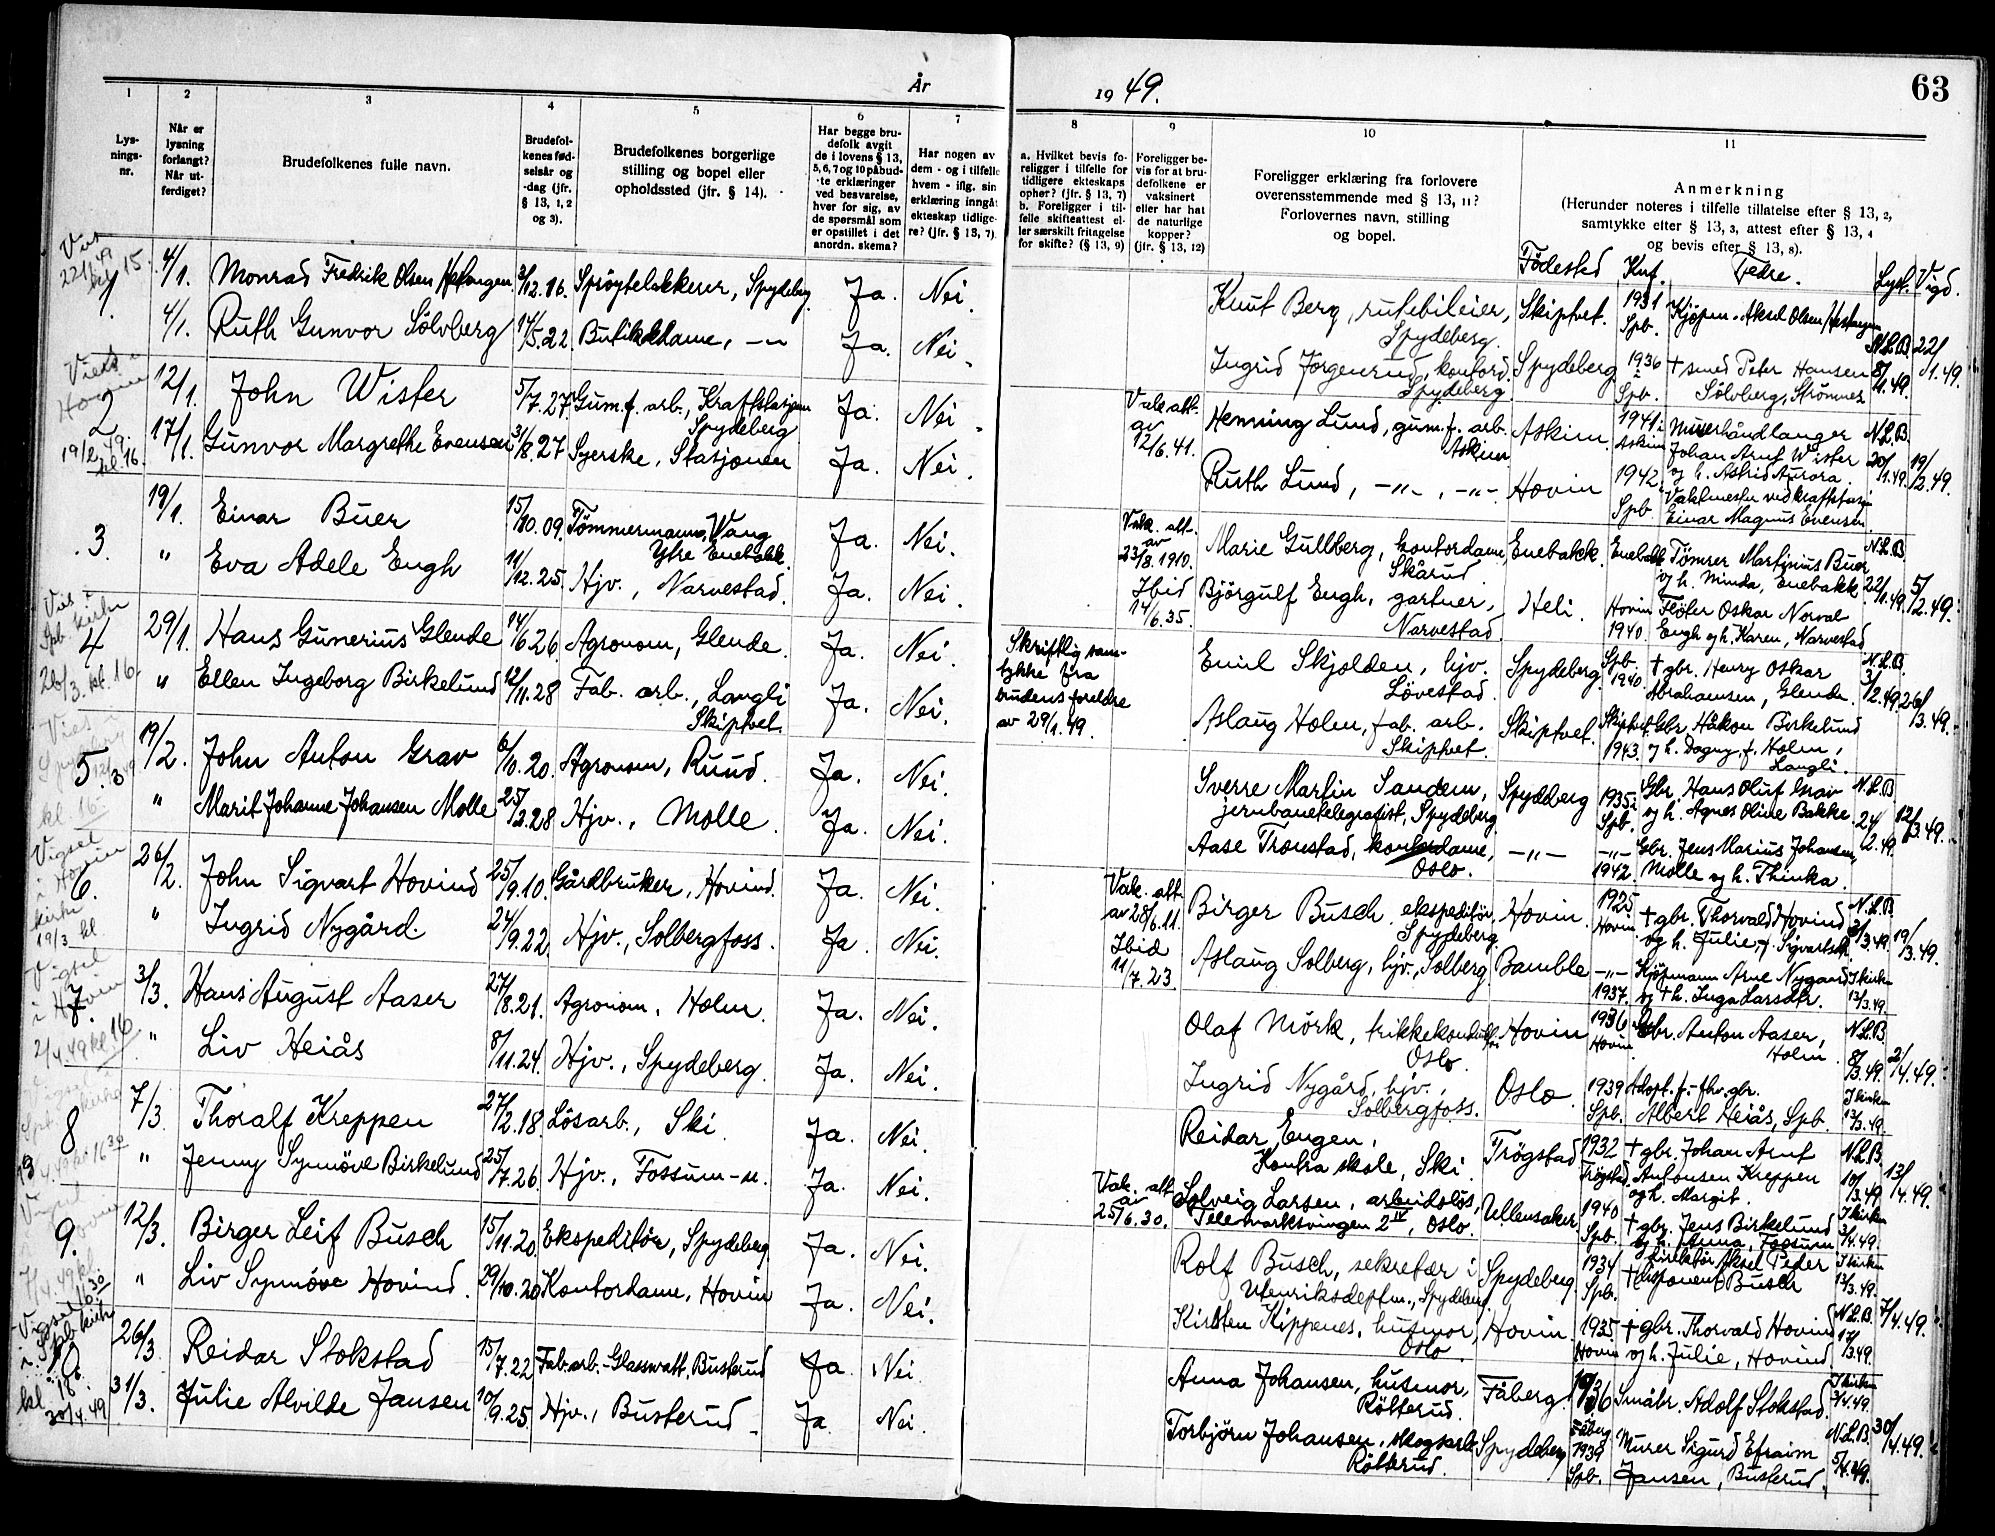 År 1949.
63
1
2
3
4
5
6
7
8
9
10
11
Lys-
nings-
nr.
Når er
lysning
forlangt?
Når ut-
ferdiget?
Brudefolkenes fulle navn.
Brudefol-
kenes fød-
selsår og
-dag (jfr.
§ 13, 1, 2
og 3).
Brudefolkenes borgerlige
stilling og bopel eller
opholdssted (jfr. § 14).
Har begge bru-
defolk avgit
de i lovens § 13,
5, 6, 7 og 10 påbud-
-te erklæringer
ved besvarelse,
hver for sig, av
de spørsmål som
er opstillet i det
anordn. skema?
Har nogen av
dem - og i tilfelle
hvem - iflg. sin
erklæring inngåt
ekteskap tidlige-
re? (jfr. § 13, 7)
a. Hvilket bevis fo-
religger i tilfelle for
tidligere ekteskaps
ophør? (jfr. § 13, 7)
b. Foreligger i til-
felle skifteattest el-
ler særskilt fritagelse
for skifte? (§ 13, 9)
Foreligger be-
vis for at bru-
defolkene er
vaksinert
eller har hat
de naturlige
kopper?
(jfr. § 13, 12)
Foreligger erklæring fra forlovere
overensstemmende med § 13, 11?
Forlovernes navn, stilling
og bopel.
Anmerkning
(Herunder noteres i tilfelle tillatelse efter § 13, 2,
samtykke efter § 13, 3, attest efter § 13, 4
og bevis efter § 13, 8).
Födested Knf. Fedre. Lyst. Vigd.
1
4/1. Monrad Fredrik Olsen 3/12.16. Spröytelakkerer, Spydeberg Ja. Nei.
4/1. Ruth Gunvor Sölvberg 14/5.22. Butikkdame, -"- Ja. Nei.
Knut Berg, rutebileier, Skiptvet. 1931
Spydeberg. Spb. Kjøpm. Aksel Olsen
Ingrid Jörgenrud, kontord. Spydeberg 1936 † smed Peter Hansen
Spydeberg Spb. Sölvberg, Strömnes
N.L.B. 8/1.49. 22/1.49.
2
19/2.49. kl. 16.
12/1. John Wister 5/7.27 Gum.f. arb., Kraftstasjonen Ja. Nei.
Spydeberg
17/1. Gunvor Margrethe Evensen 31/8.27 Syerske, Stasjonen Ja. Nei.
Vak. att. av 12/6.41.
Henning Lund, gum.f. arb. Askim. 1941 i Murerhåndlanger
Askim Askim Johan Arnt Wister
og h. Astrid Aurora.
Ruth Lund, -"-, -"- Hovin 1942 Vaktmester ved kraftstasj.
Spb Einar Magnus Evensen
N.L.B. 20/1.49. 19/2.49.
3
19/1. Einar Buer 15/10.09. Tömmermann, Vang Ja. Nei.
Ytre Enebakk.
" Eva Adele Engh 11/12.25. Hjv., Narvestad. Ja. Nei.
Vak. att. av 23/8.1910.
Ibid 14/6.35.
Marie Gullberg, kontordame, Enebakk. Enebakk Tömrer Martinius Buer
Skårud. og h. Minda, Enebakk
Björgulf Engh, gartner, Heli. Hovin Fløter Oskar Norval
Narvestad. 1940. Engh og h. Karen, Narvestad
N.L.B. 22/1.49. 5/2.49.
4
Spb. kirke
26/3. kl. 16.
29/1. Hans Gunerius Glende 14/6 26. Agronom, Glende. Ja. Nei.
" Ellen Ingeborg Birkelund 12/11.28 Fab. arb., Langli Ja. Nei.
Skiptvet.
Skriftlig sam-
tykke fra
brudens foreldre
av 29/1.49.
Emil Skjolden, hjv. Spydeberg Spb. † gbr. Henry Oskar
Lövestad. 1940 Abrahamsen, Glende.
Aslaug Holen, fab. arb. Skiptvet. Skiptvet Gbr. Håkon Birkelund
Skiptvet. 1943. og h. Dagny, f. Holen,
Langli.
N.L.B. 3/2.49. 26/3.49.
5.
kl. 16
19/2. John Anton Grav 6/10.20. Agronom, Ruud. Ja. Nei.
" Marit Johanne Johansen Molle 25/2.28 Hjv., Molle. Ja. Nei.
Sverre Martin Sandem, Spydeberg 1935 i Gbr. Hans Oluf Grav
jernbanetelegrafist, Spydeberg. Spb. og h. Agnes Oline Bakke.
Aase Tronstad, kontordame, -"- -"- Gbr. Jens Marius Johansen
Oslo. 1942. Molle og h. Thinka.
N.L.B 24/2.49. 12/3.49.
6.
Vigsel i Hovin kirke 19/3 kl.
26/2. John Sigvart Hovind 25/9.10. Gårdbruker, Hovind. Ja. Nei.
" Ingrid Nygård. 24/9.22. Hjv., Solbergfoss. Ja. Nei.
Vak. att. av 28/6.11.
Ibid 11/7.23.
Birger Busch, ekspeditör, Hovin. 1925 † gbr. Thorvald Hovind
Spydeberg Hovin og h. Julie, f. Sigvartsen
Aslaug Solberg, hjv., Solberg Bamble -"- Kjøpmann Arne Nygård
1937. og † h. Inga Larsdtr.
N.L.B. 3/3.49. 19/3.49.
I kirken 13/3.49.
7.
Vigsel i Hovin 2/4.49 kl 16
3/3. Hans August Aaser 27/8.21. Agronom, Holm. Ja. Nei.
" Liv Heiås 8/11.24. Hjv., Spydeberg. Ja. Nei.
Olaf Mörk, trikkekonduktör Hovin 1936 Gbr. Anton Aaser,
Oslo. Hovin Holm.
Ingrid Nygård, hjv., Oslo. 1939 Adopt. f.- fhv. gbr.
Solbergfoss. Spb. Albert Heiås, Spb.
N.L.B. 8/3.49. 2/4.49.
I kirken 13/3.49.
8
7/3. Thoralf Kreppen 27/2.18. Lösarb., Ski. Ja. Nei.
" Jenny Synnöve Birkelund 25/7.26. Hjv., Fossum-u. Ja. Nei.
Vak. att. av 25/6.30.
Reidar Engen, Trögstad 1932 † gbr. Johan Arnt
Kontra skole, Ski Trögstad. Antonsen Kreppen
og h. Margit.
Solveig Larsen, arbeidslös, Ullensaker. 1940 † gbr. Jens Birkelund
Telemarksvingen 2 IV, Oslo. Spb. og h. Anna, Fossum
N.L.B. 10/3.49 13/4.49.
I kirken 3/4.49.
9.
7/4.49 kl. 16.30
12/3. Birger Leif Busch 15/11.20. Ekspeditör, Spydeberg Ja. Nei.
" Liv Synnöve Hovind. 29/10.20 Kontordame, Hovin Ja. Nei.
Rolf Busch, sekretær i Spydeberg. 1934 direktör Aksel Peder
Utenriksdeptm., Spydeberg. Spb. † disponent Busch
Kirsten Kippenes, husmor, Hovin. 1935 † gbr. Thorvald Hovind
Oslo. Hovin og h. Julie, Hovind.
I kirken 13/3.49.
N.L.B. 17/3.49. 7/4.49.
10.
Vigsel i Spb. kirke kl 18. 30/4.49
26/3 Reidar Stokstad 15/7.22 Fab.arb.-Glassvatt, Busterud Ja Nei.
31/3. Julie Alvilde Jansen 10/9.25. Hjv., Busterud Ja. Nei.
Anna Johansen, husmor, Fåberg. 1936 Småbr. Adolf Stokstad.
Rötterud. Fåberg
Torbjörn Johansen, skogsarb. Spydeberg 1939 Murer Sigurd Efraim
Rötterud. Spb. Jansen, Busterud.
I kirken 3/4.49.
N.L.B. 5/4.49. 30/4.49.